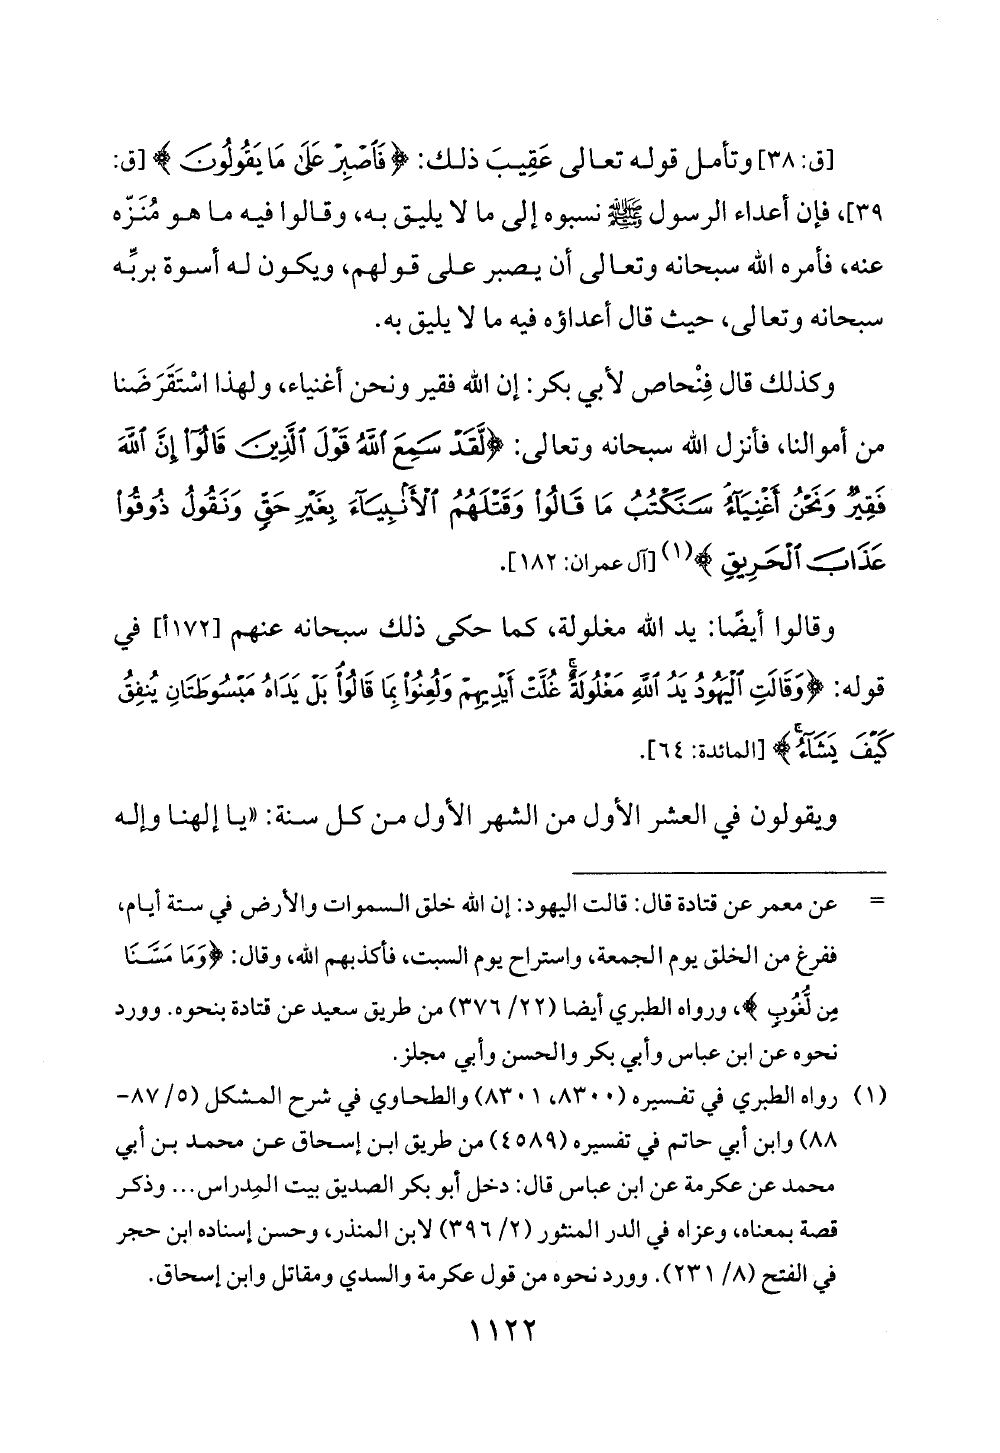 [ق: ٣٨] وتأمل قوله تعالى عَقِيبَ ذلك: ﴿فَٱصْبِرْ عَلَىٰ مَا يَقُولُونَ﴾ [ق:
٣٩]، فإن أعداء الرسول ﷺ نسبوه إلى ما لا يليق به، وقالوا فيه ما هو مُنَزّه
عنه، فأمره الله سبحانه وتعالى أن يصبر على قولهم، ويكون له أسوة بربِّه
سبحانه وتعالى، حيث قال أعداؤه فيه ما لا يليق به.
وكذلك قال فِنْحاص لأبي بكر: إن الله فقير ونحن أغنياء، ولهذا اسْتَقَرَضَنا
من أموالنا، فأنزل الله سبحانه وتعالى: ﴿لَّقَدْ سَمِعَ ٱللَّهُ قَوْلَ ٱلَّذِينَ قَالُوٓا۟ إِنَّ ٱللَّهَ
فَقِيرٌ وَنَحْنُ أَغْنِيَآءُ سَنَكْتُبُ مَا قَالُوا۟ وَقَتْلَهُمُ ٱلْأَنۢبِيَآءَ بِغَيْرِ حَقٍّ وَنَقُولُ ذُوقُوا۟
عَذَابَ ٱلْحَرِيقِ﴾(١) [آل عمران: ١٨٢].
وقالوا أيضًا: يد الله مغلولة، كما حكى ذلك سبحانه عنهم [١٧٢أ] في
قوله: ﴿وَقَالَتِ ٱلْيَهُودُ يَدُ ٱللَّهِ مَغْلُولَةٌ ۚ غُلَّتْ أَيْدِيهِمْ وَلُعِنُوا۟ بِمَا قَالُوا۟ ۘ بَلْ يَدَاهُ مَبْسُوطَتَانِ يُنفِقُ
كَيْفَ يَشَآءُ ۚ﴾ [المائدة: ٦٤].
ويقولون في العشر الأول من الشهر الأول من كل سنة: «يا إلهنا وإله
= عن معمر عن قتادة قال: قالت اليهود: إن الله خلق السموات والأرض في ستة أيام،
ففرغ من الخلق يوم الجمعة، واستراح يوم السبت، فأكذبهم الله، وقال: ﴿وَمَا مَسَّنَا
مِن لُّغُوبٍ﴾، ورواه الطبري أيضا (٢٢/ ٣٧٦) من طريق سعيد عن قتادة بنحوه. وورد
نحوه عن ابن عباس وأبي بكر والحسن وأبي مجلز.
(١) رواه الطبري في تفسيره (٨٣٠٠، ٨٣٠١) والطحاوي في شرح المشكل (٥/ ٨٧-
٨٨) وابن أبي حاتم في تفسيره (٤٥٨٩) من طريق ابن إسحاق عن محمد بن أبي
محمد عن عكرمة عن ابن عباس قال: دخل أبو بكر الصديق بيت المِدراس... وذكر
قصة بمعناه، وعزاه في الدر المنثور (٢/ ٣٩٦) لابن المنذر، وحسن إسناده ابن حجر
في الفتح (٨/ ٢٣١). وورد نحوه من قول عكرمة والسدي ومقاتل وابن إسحاق.
١١٢٢